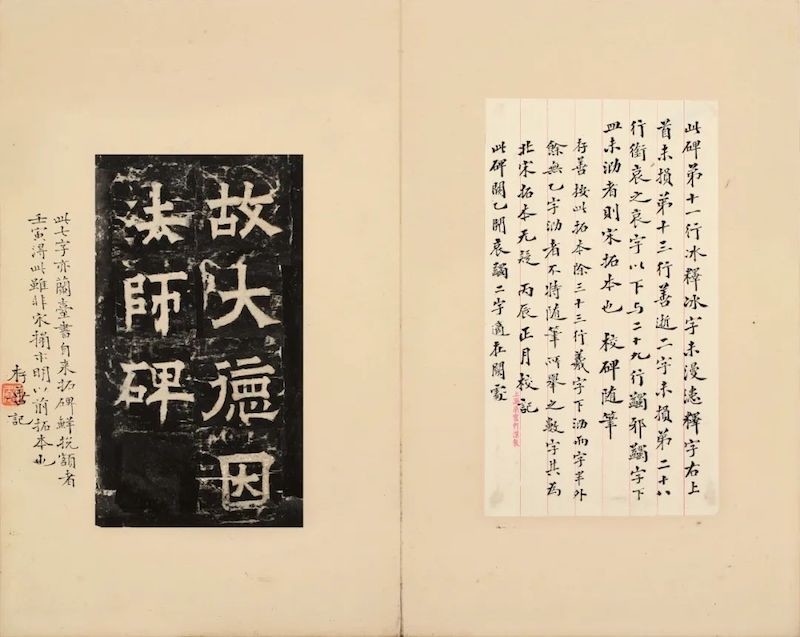 此碑第十一行冰釋冰字未漫漶釋字右上
首未損第十三行善逝二字未損第二十八
行銜哀之哀字以下与二十九行蠲邪蠲字下
皿未泐者則宋拓本也 校碑随筆
存善按此拓本除三十三行羲字下泐而字半外
餘無乙字泐者不特随筆所舉之數字其為
北宋拓本无疑 丙辰正月校記
此碑闕乙開哀蠲二字適在闕處
故大德因
法師碑
此七字亦蘭臺書自来拓碑鮮挩額者
壬寅得此雖非宋搨亦明以前拓本也
存善記